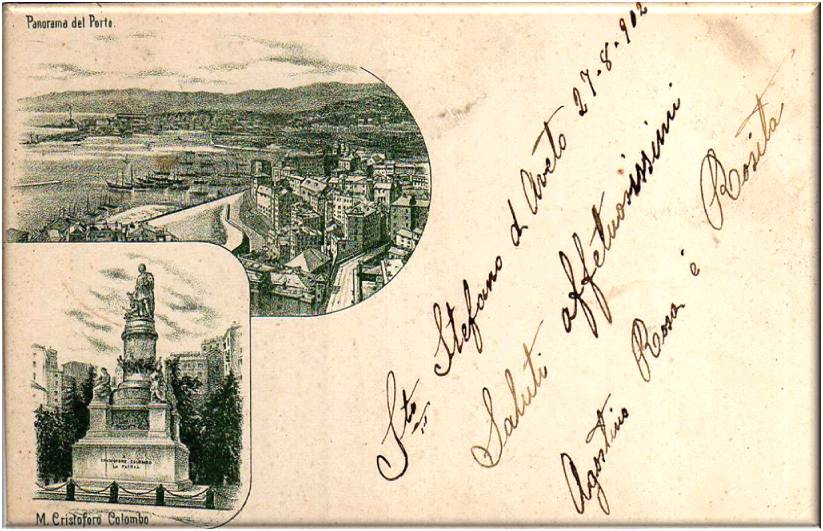 Panorama del Porto.
Sto Stefano d Aveto 27-8-902
Saluti affettuosissimi
Agostino Rosa e Rosita
CRISTOFORO COLOMBO
LA PATRIA
M. Cristoforo Colombo